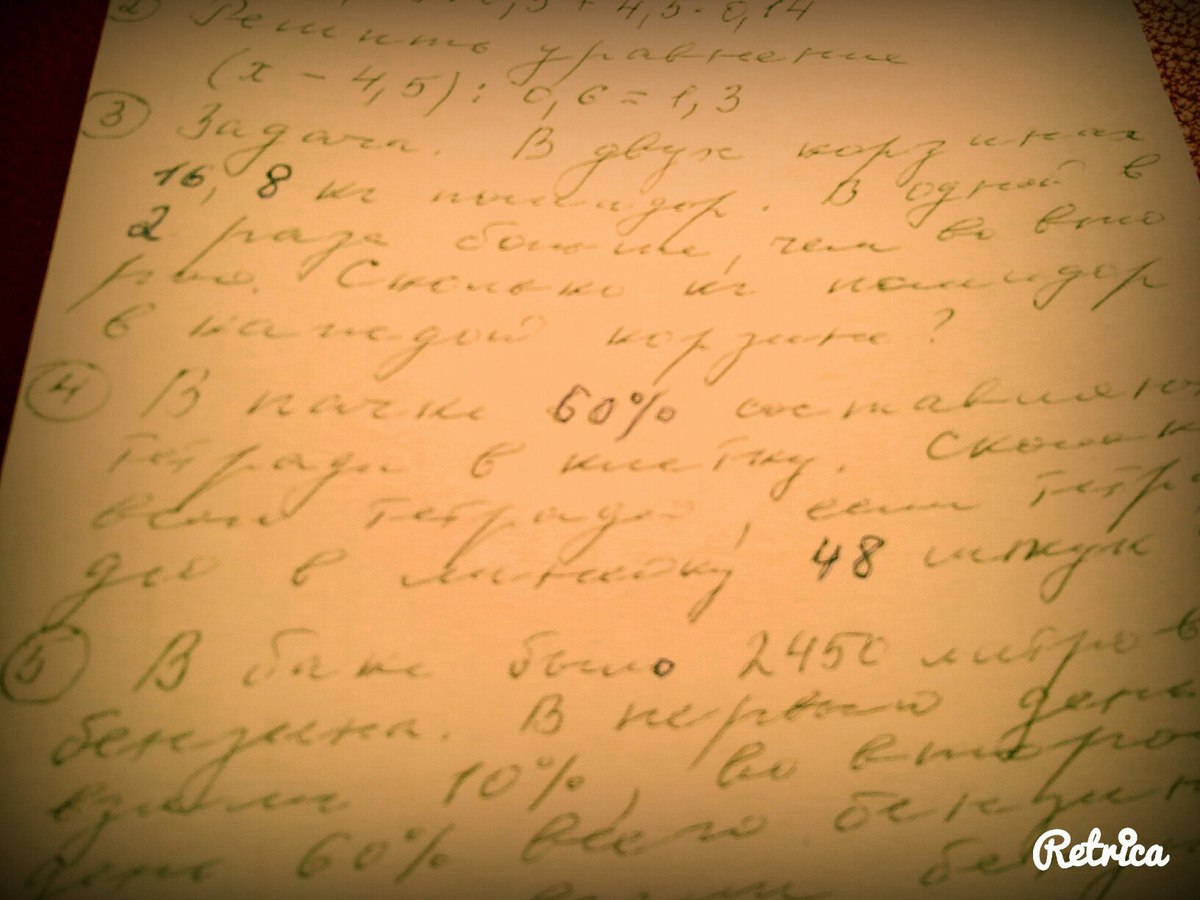 2) ,5 + 4,5 · 0,14
Решить уравнение
(x - 4,5) : 0,6 = 1,3
③ Задача. В двух корзинах
16,8 кг помидор. В одной в
2 раза больше, чем во вто
рой. Сколько кг помидор
в каждой корзине?
④ В пачке 60% составляют
тетради в клетку. Сколько
всего тетрадей, если тетра
дей в линейку 48 штук
⑤ В баке было 2450 литров
бензина. В первый день
взяли 10%, во второй
день 60% всего бензин
взяли бен
Retrica